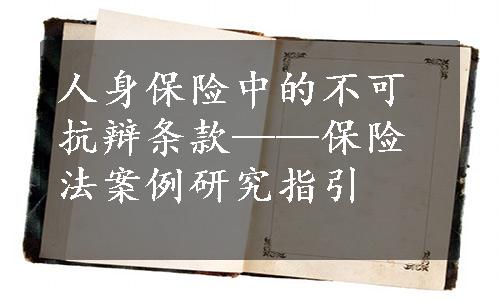 人身保险中的不可
抗辩条款——保险
法案例研究指引